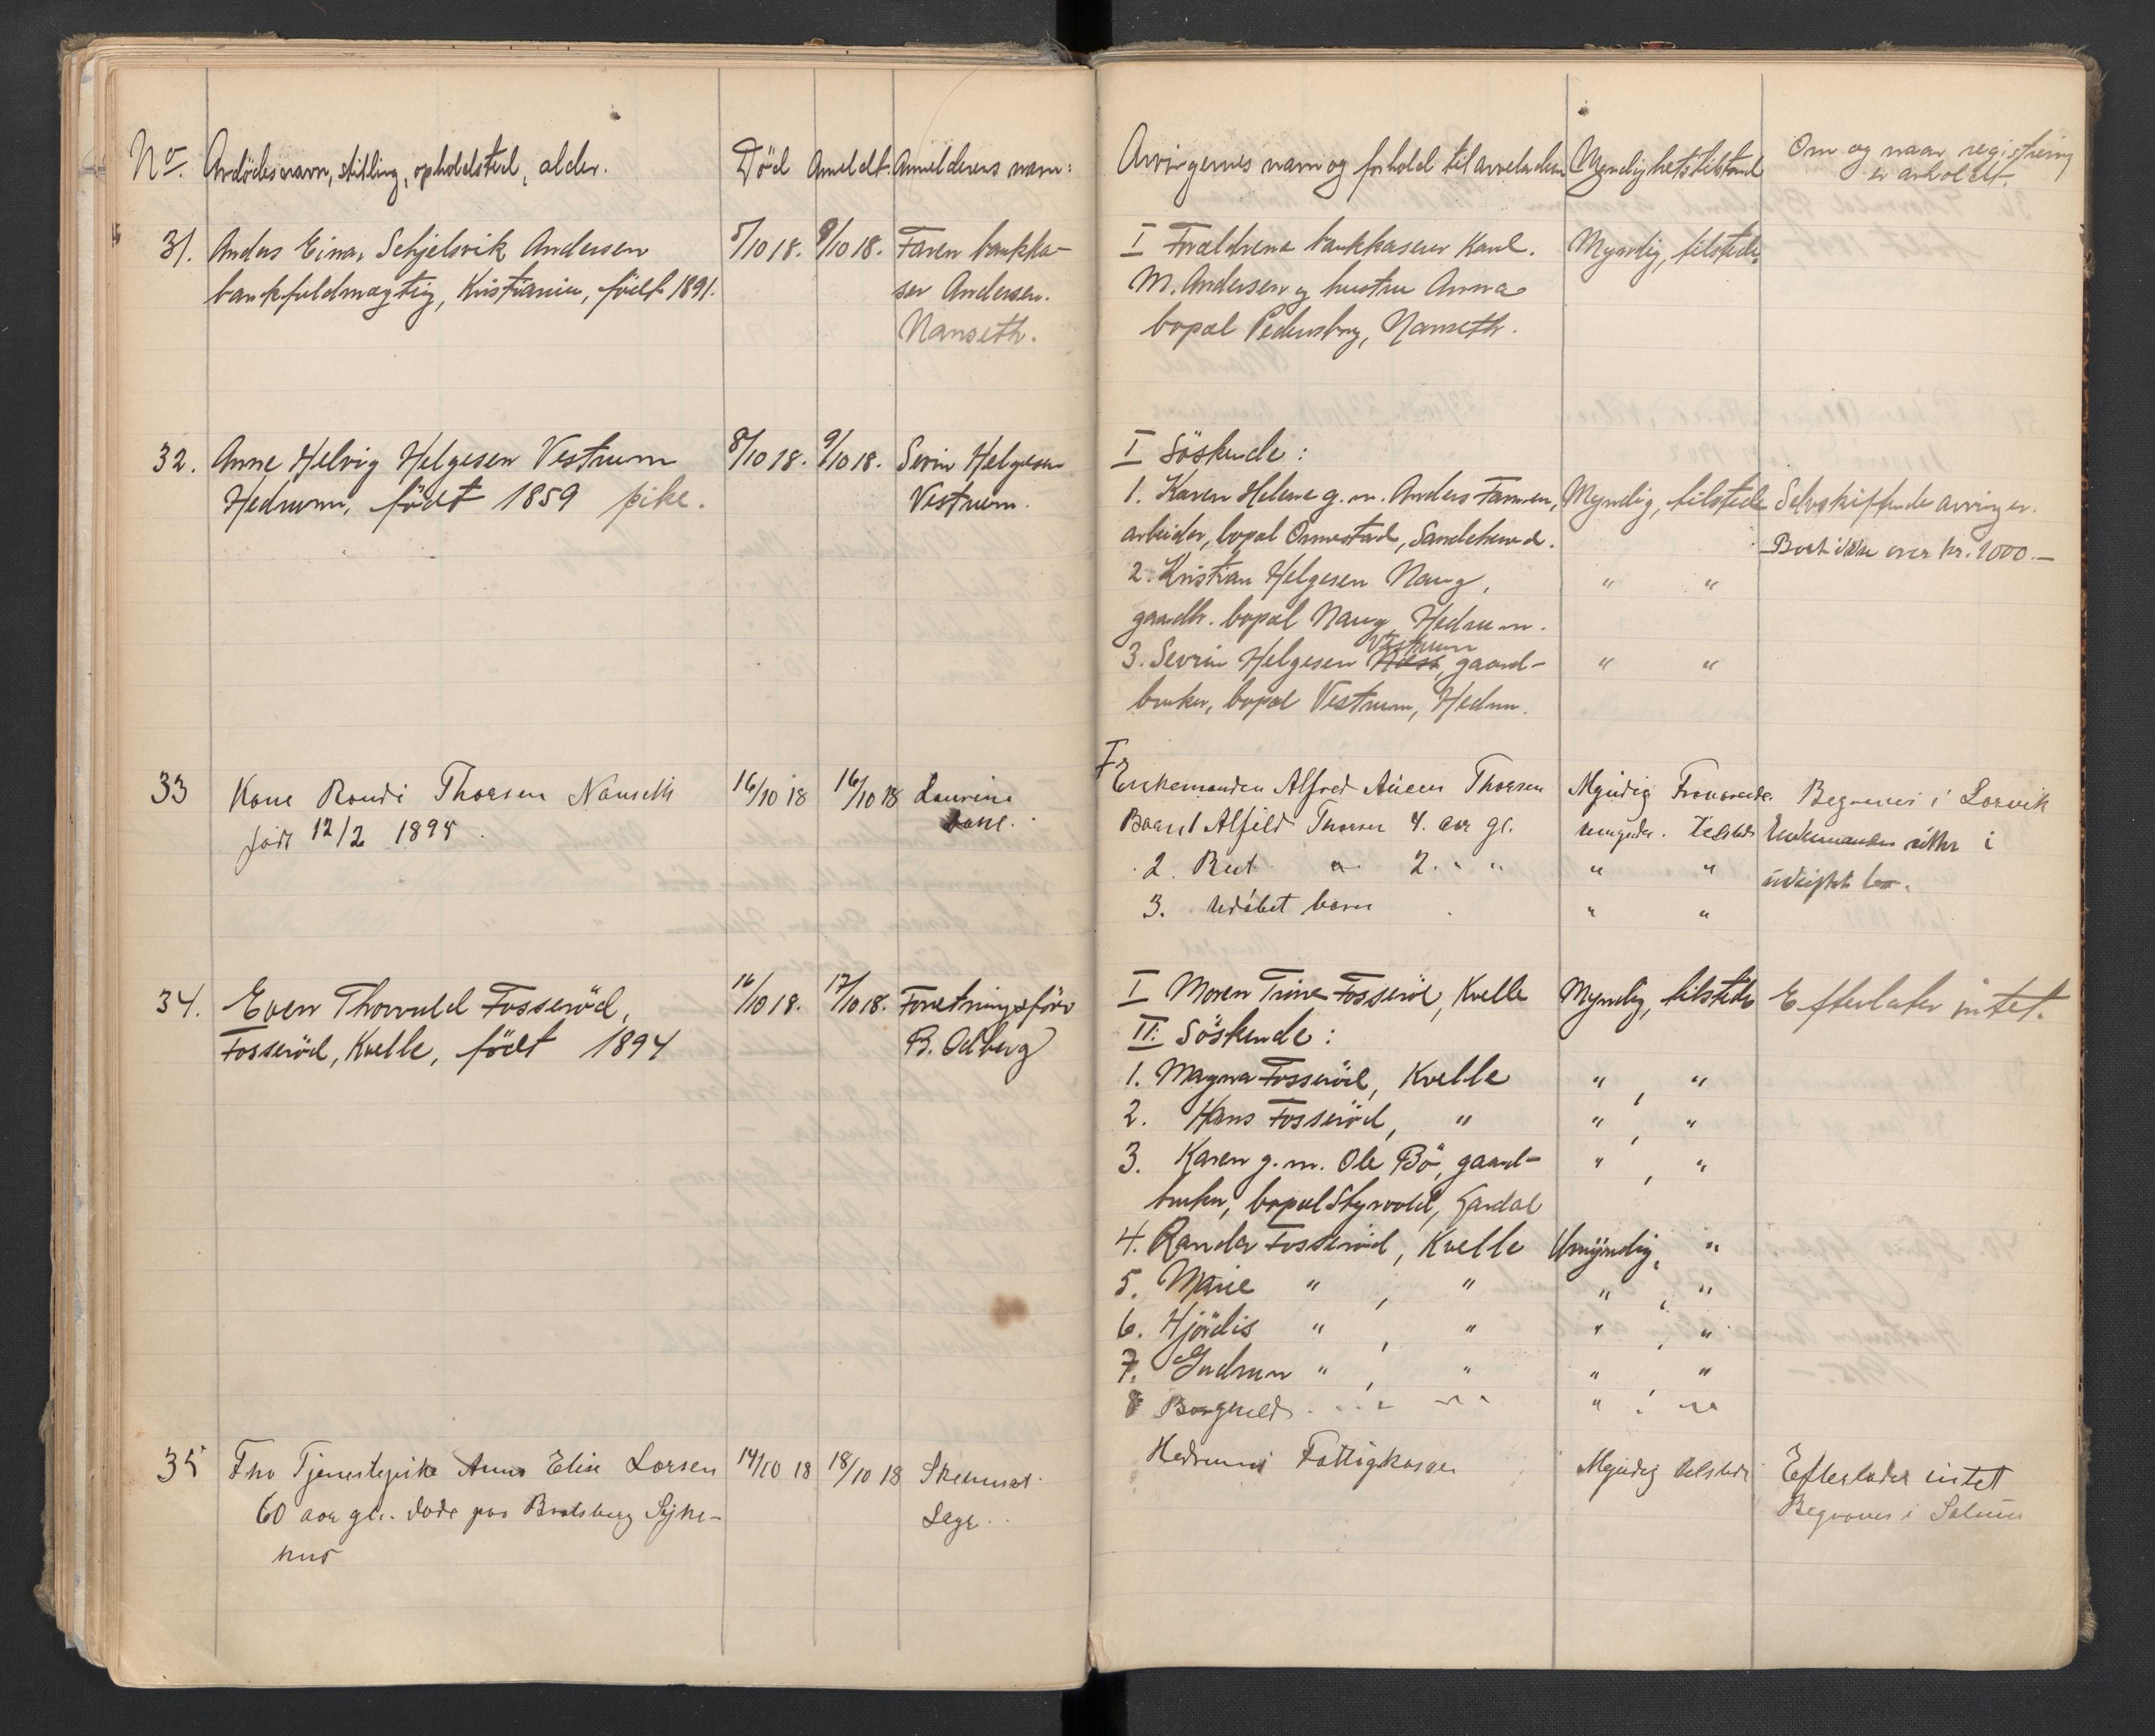 No. Avdödes navn, stilling, opholdsted, alder.
Död Anmeldt. Anmelderens navn:
31. Anders Einar Schjelsvik Andersen
bankfuldmægtig, Kristiania, født 1891.
5/10 18. 9/10 18. Faren bankka-
ser Andersen.
Nanseth.
32. Anne Helvig Helgesen Vestrum
Hedrum, födt 1859 pike.
8/10 18. 9/10 18. Sevrin Helgesen
Vestrum.
33 Kone Randi Thorsen Nanseth
født 12/2 1895.
16/10 18 16/10 18 Laurine
34. Even Thorvald Fosseröd,
Fosseröd, Kvelle, födt 1894
16/10 18. 17/10 18. Forretningsförer
B. Odberg
35 Fhv Tjenestepike Anne Elise Larsen
60 aar gl. døde paa Bratsberg Syke-
hus
14/10 18 18/10 18 Skiensret
Lage
Arvingernes navn og forhold til arveladeren
Myndighetstilstand
Om og naar registrering
er avholdt.
I Forældrene bankkaserer Karel.
M. Andersen og hustru Anna
bopæl Pedersborg, Nanseth.
Myndig, tilstede.
I Söskende:
1. Karen Helene g. m. Anders Famren,
arbeider, bopæl Ormestad, Sandeherred.
Myndig, tilstede
Selvskiftende arvinger.
Boet ikke over kr. 1000.-
2. Kristian Helgesen Naug,
gaardbr. bopæl Naug, Hedrum.
" "
3. Sevrin Helgesen Næss Vestrum, gaard-
bruker, bopæl Vestrum, Hedrum.
" "
I
Enkemanden Alfred Thorsen
Barn 1 Alfild Thorsen 4. aar gl.
2. Rut " 2. " "
3. Udøbt barn
Myndig Fraværende
umyndig. Tilstede
" "
" "
Begraves i Larvik
Enkemanden sitter i
uskiftet bo.
I Moren Trine Fosseröd, Kvelle
Myndig, tilstede
Efterlater intet.
II. Söskende:
1. Magna Fosseröd, Kvelle " , "
2. Hans Fosseröd, " " , "
3. Karen g. m. Ole Bö, gaard-
bruker, bopæl Styrvold, Lardal
" , "
4. Randar Fosseröd, Kvelle Umyndig, "
5. Marie " , " " , "
6. Hjördis " , " " , "
7. Gudrun " , " " "
8 Borghild " , " " , "
Hedrums Fattigkasse
Myndig tilstede
Efterlader intet
Begraves i Solum